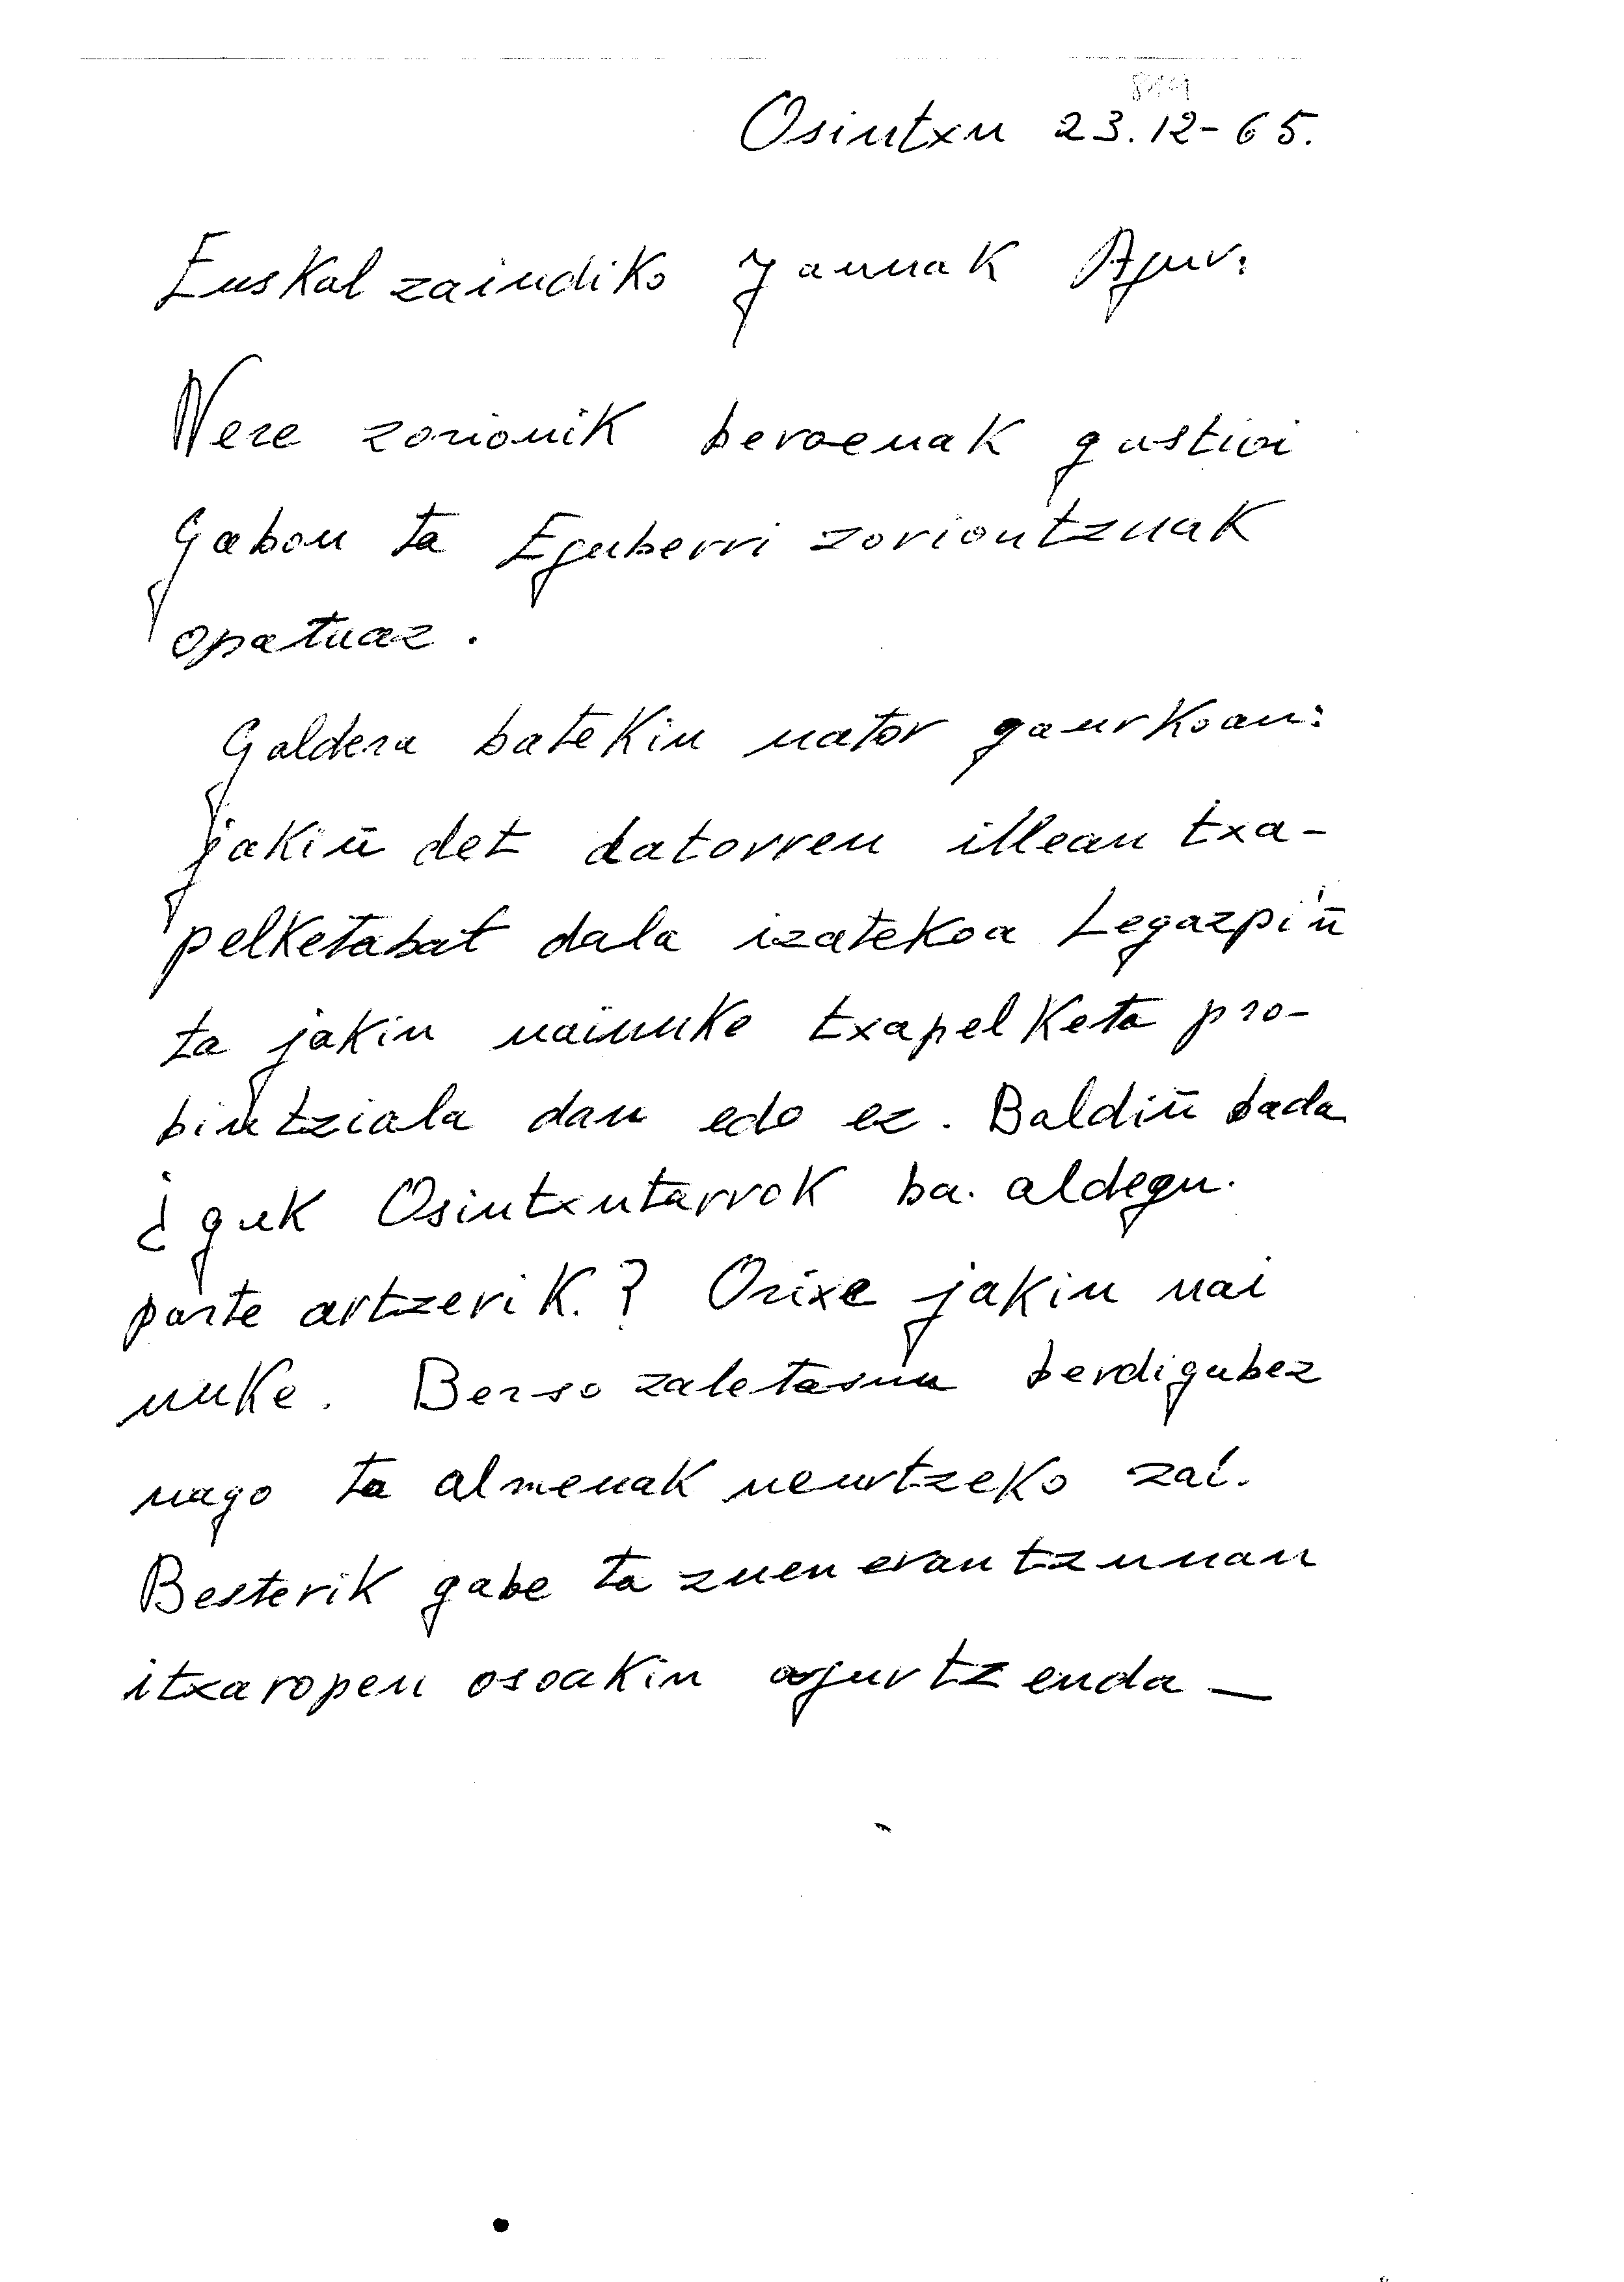 Osintxu 23.12-65.
Euskalzaindiko Jaunak Agur:
Nere zorionik beroenak guztioi
Gabon ta Eguberri zoriontzuak
opatuaz.
Galdera batekin nator gaurkoan:
jakiñ det datorren illean txa-
pelketabat dala izatekoa Legazpi'ñ
ta jakin nainuke txapelketa pro-
bintziala dan edo ez. Baldiñ bada
¿guk Osintxutarrok ba. aldegu.
parte artzerik.? Orixe jakin nai
nuke. Berso zaletasun berdigabez
nago ta almenak neurtzeko zai.
Besterik gabe ta zuen erantzunan
itxaropen osoakin agurtzenda —